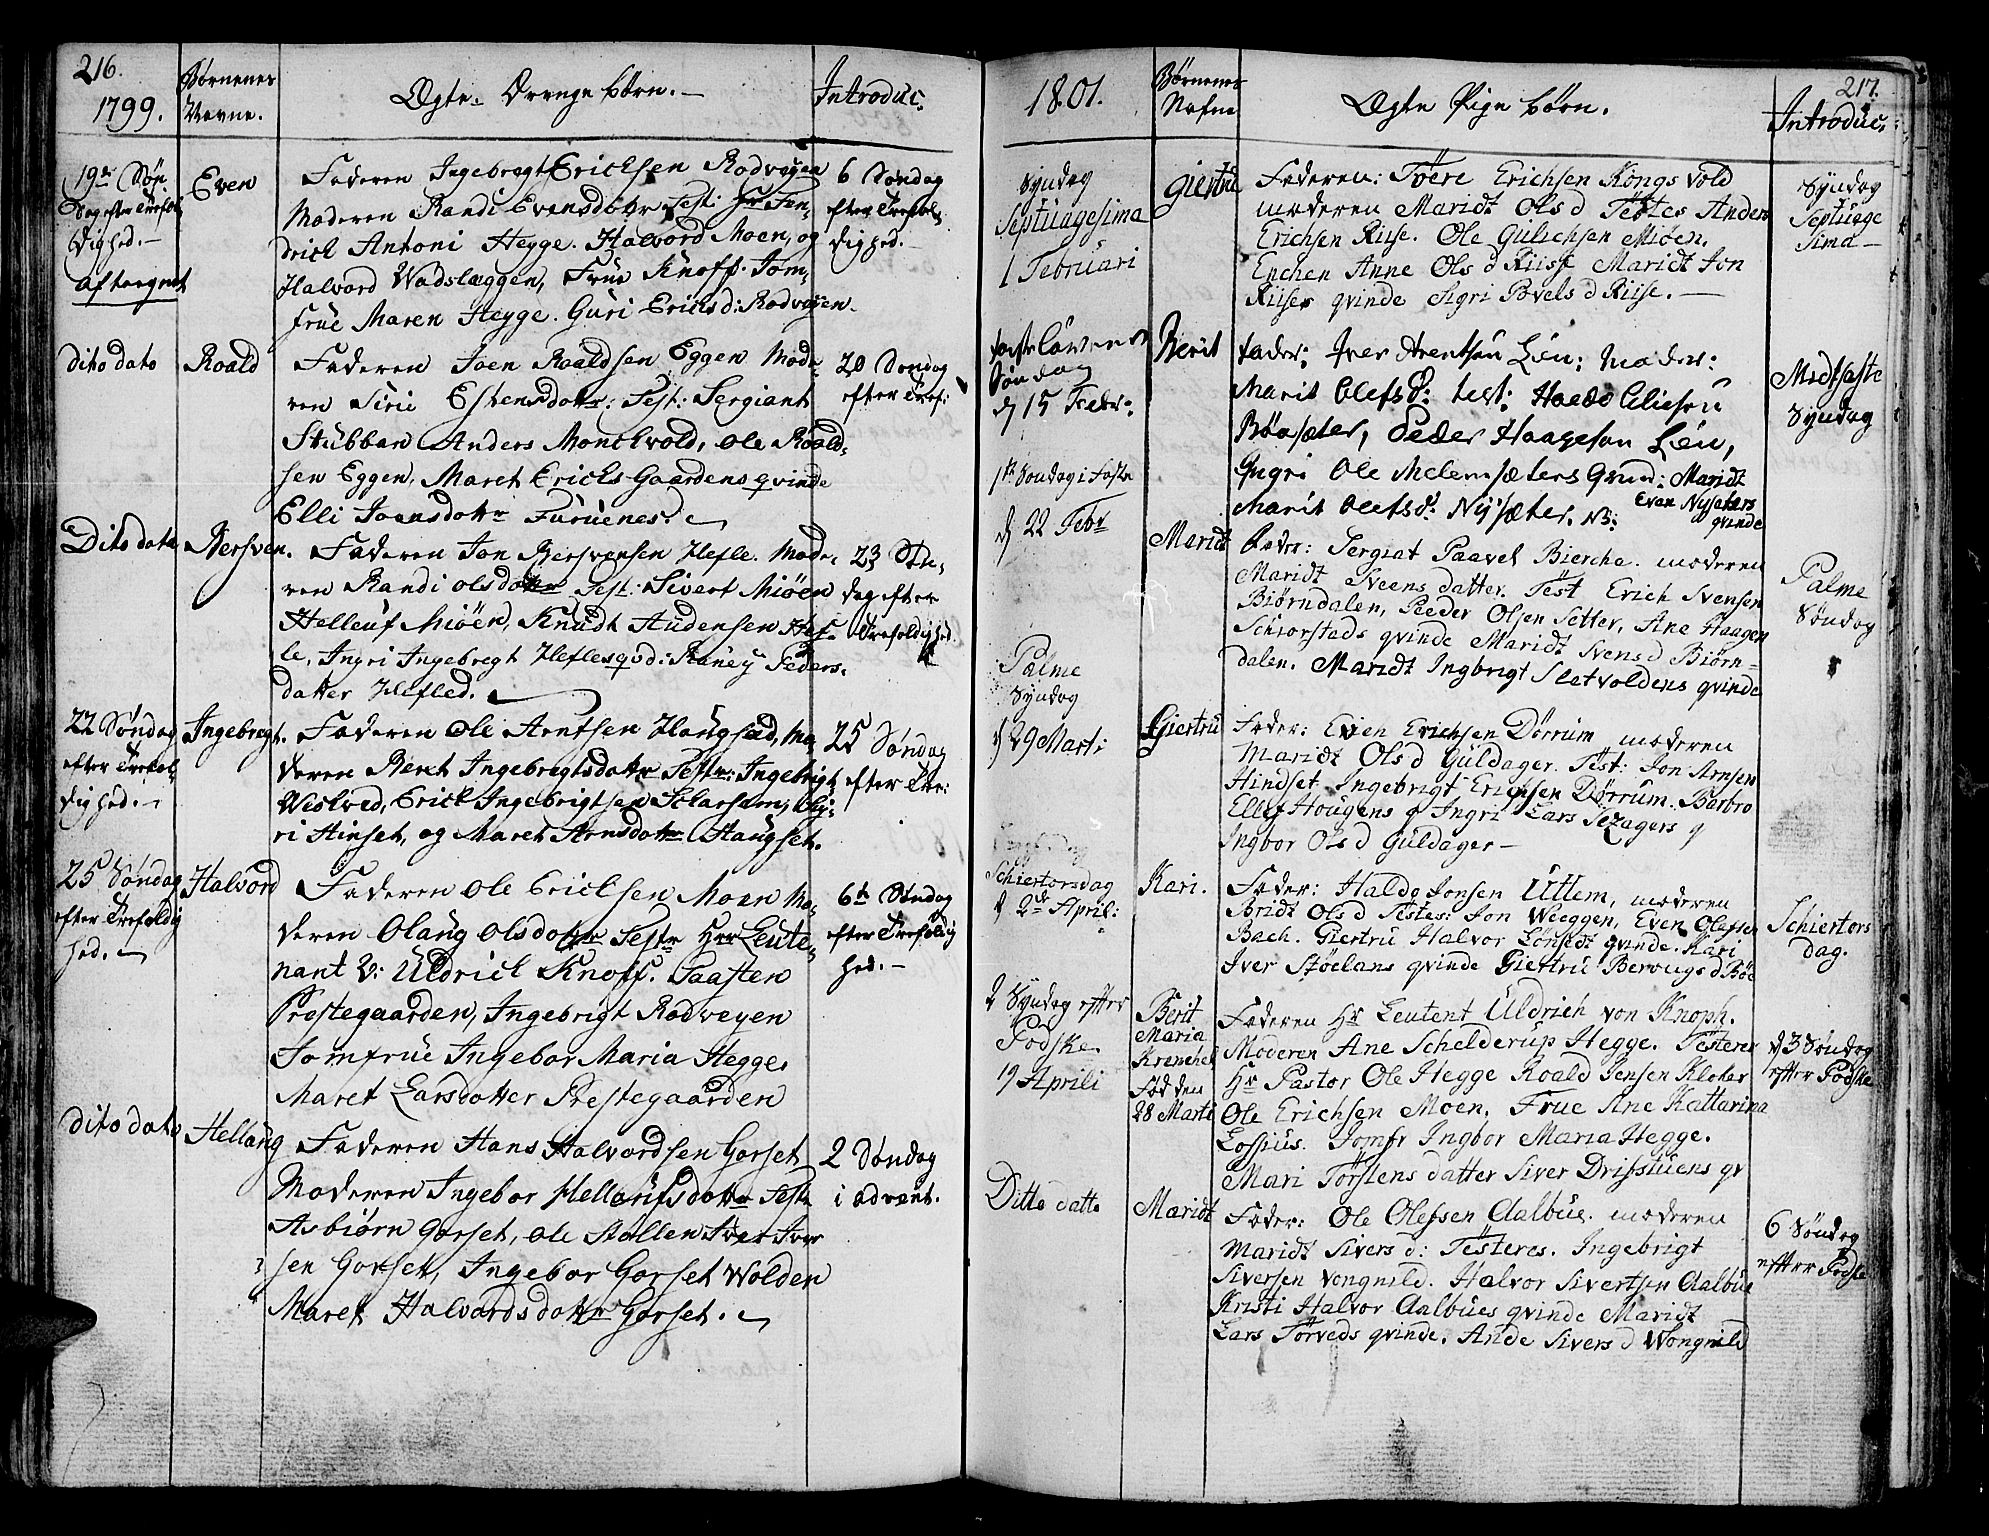 216.
1799.
Børnenes
Navne.
Ægte Drenge børn. —
Introduc.
19de Søn
dag efter Trefol-
dighed. —
aftægret
Even
Faderen Ingebregt Ericksen Rodvegen
Moderen Randi Evensdottr Test: Hr Fen-
drick Antoni Hegge. Halvord Moen, og
Halvord Wadslæggen, Frue Knoff. Jom-
frue Maren Hegge. Guri Ericksd: Rodvegen.
6 Søndag
efter Trefol-
dighed. —
dito dato
Roald
Faderen Joen Roaldsen Eggen Mode-
ren Siri Estensdottr: Test: Sergiant
Stubban Anders Monckvold, Ole Roald-
sen Eggen, Maret Ericks Gaardens qvinde
Elli Joensdottr Furuenes.
20 Søndag
efter Tref:
Dito dato
Bersven.
Faderen Jon Bersvensen Hefle. Mode-
ren Randi olsdottr Test: Sivert Miøen
Helleuf Miøen, Knudt Audensen Hef-
le, Ingri Ingebregt Hefles qvd: Raney Peders-
datter Hefled.
23 Søn-
dag efter
Trefoldighed.
22 Søndag
efter Trefol-
dighed. —
Ingebregt.
Faderen Ole Arntsen Haugsad, Mo-
deren Beret Ingebregtsdottr Testr: Ingebrigt
Westved, Erick Ingebrigtsen Skarsem, Gu-
ri Hinset, og Maret Arnsdottr Haugset.
25 Søndag
efter Tre:
25 Søndag
efter Trefoldig
hed. —
Halvord
Faderen Ole Ericksen Moen Mo-
deren Olaug Olsdottr Testr Hrr Leute-
nant V: Uldrick Knoff. Paasten
Præstegaarden, Ingebrigt Rodvegen
Jomfrue Ingebor Maria Hegge.
Maret Larsdotter Præstegaarden
6te Søndag
efter Trefoldig
hed. —
dito dato
Hellaug
Faderen Hans Halvordsen Gorset
Moderen Ingebor Hellaufsdottr Testr
Asbiørn Gorset, Ole Stallen Iver Iver
sen Gorset, Ingebor Gorset Wolden
Maret Halvordsdottr Gorset.
2 Søndag
i advent.
1801.
Børnenes
Nafne
Ægte Pige børn.
217.
Introduc:
Syndag
Septuagesima
1 Februari
Giertru
Faderen: Töere Erichsen Kongsvold
moderen Maridt Ols d Testes Anders
Erichsen Riise. Ole Gulichsen Miøen.
Enchen Anne Ols d Riise Maridt Jon
Riises qvinde Sigri Povels d Riise. —
Syndag
Septuage
sima —
fastelavens
Søndag
d 15 Febr:
Berit
fader: Iver Arentsøn Løn: moder:
Marit Olefsd: test: Haldo Eliesøn
Böesæter, Peder Haagesøn Løn,
Ingri Ole Melemsæters Qvind: Maridt
Marit Olefsd: Nysæter. NB: Even Nysæters
qvinde
Midfaste
Syndag
1ste Søndag i Faste
d 22 Febr
Maridt
Fader: Sergiat Paavel Bierche. moderen
Maridt Sveens datter. Test Erich Svensen
Biørndalen, Peeder Olsen Setter, Ane Haagen
Schiorstads qvinde Maridt Svens d Biørn-
dalen. Maridt Ingbrigt Sletvoldens qvinde
Palme
Søndag
Palme
Syndag
d 29 Marti
Giertru
Fader: Even Erichsen Dørrum moderen
Maridt Ols d Guldager. Test: Jon Arnsen
Hindset Ingebrigt Erichsen Dørrum. Barbro
Ellef Hougens q Ingri Lars Sezagers q
Ingbor Ols d Guldager —
Schiertorsdag
d 2de April:
Kari.
Fader: Haldo Jonsen Uttem, moderen
Bridt Ols d Testes: Jon Weeggen, Even Olefsen
Bach. Giertru Halvor Lønsedt qvinde. Kari
Iver Støelans qvinde Giertru Berougs d Böe
Schiertors
dag.
2 Syndag efter
Podske.
19 Aprili
Berit
Maria
Krenchel
Fød den
28 Marti
Faderen Hr Leutent Uldrich von Knoph.
Moderen Ane Schelderup Hegge. Testerer
Hr Pastor Ole Hegge Roald Jensen Kloker
Ole Erichsen Moen. Frue Ane Kattarina
Lossius. Jomfr Ingbor Maria Hegge.
Mari Törstens datter Siver Drifstuens qv
d 3 Søndag
efter Podske
Ditto datto
Maridt
Fader: Ole Olefsen Aalbue. moderen
Maridt Sivers d: Testeres. Ingebrigt
Siversen Vongnild. Halvor Sivertsen Aalbue
Kristi Halvor Aalbues qvinde Maridt
Lars Tørveds qvinde. Ande Sivers d Wongnild
6 Søndag
efter Podske